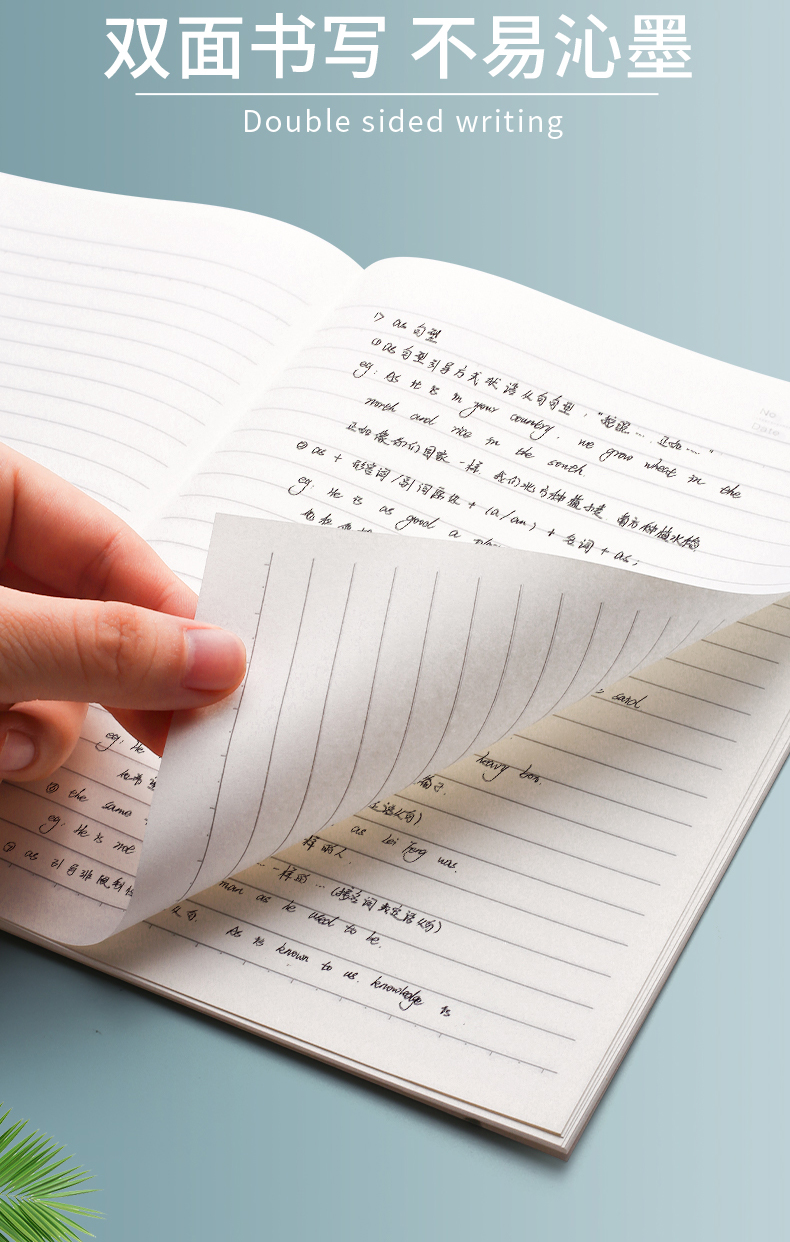 双面书写 不易沁墨
Double sided writing
No.
Date
1) as 句型
① as 句型引导方式状语从句句型:"按照…. 正如……"
eg: As it is in your country, we grow wheat in the
north and rice in the south.
正如像你们国家一样, 我们北方种植小麦, 南方种植水稻
② as + 形容词/副词原级 + (a/an) + 名词 + as;
eg: He is as good a
sand
eg: He
heavy box.
箱子.
③ the same
主语从句)
eg: He is not
as Lei Feng was.
样的人.
④ as 引导非限制性
…一样的…(接名词或定语从句)
man as he used to be.
从句.
As is known to us, knowledge is